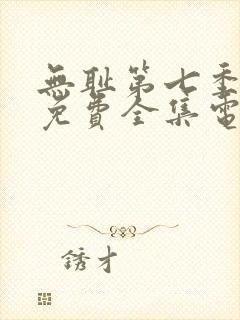 無耻第七季
免費全集電
銹才